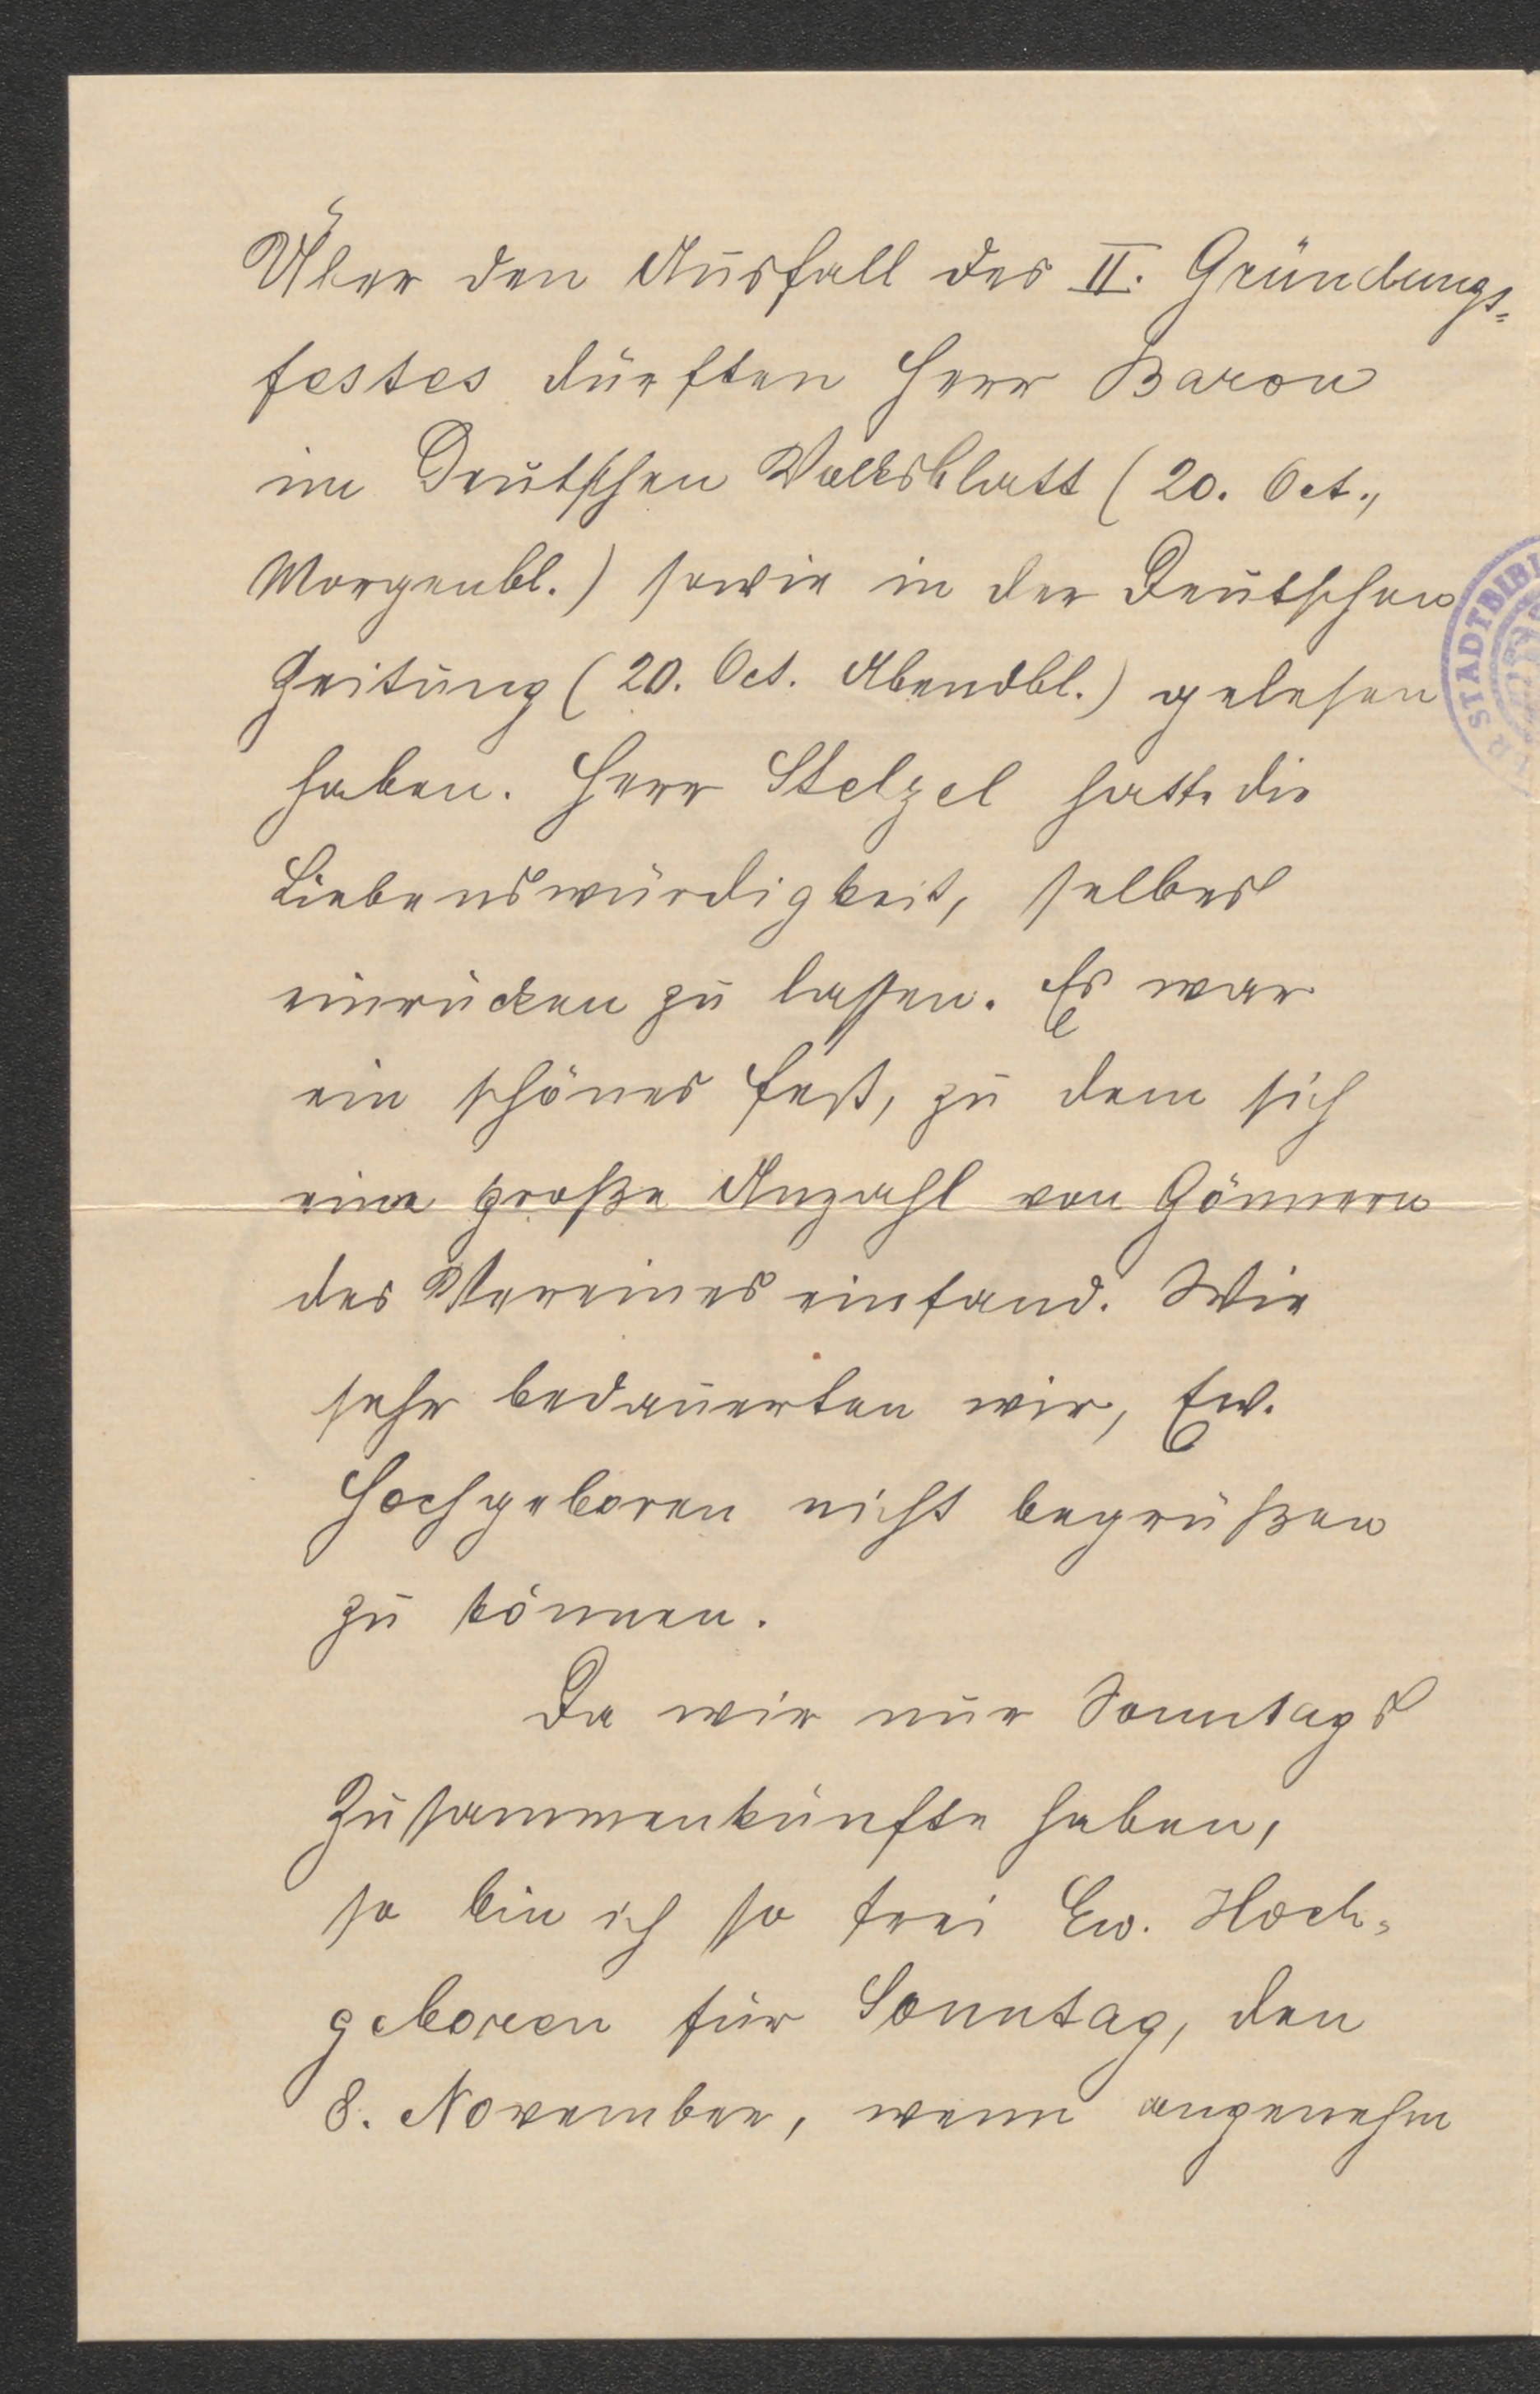 Über den Ausfall des II. Gründungs=
festes dürften Herr Baron
im Deutschen Volksblatt (20. Oct.,
Morgenbl.) sowie in der Deutschen
Zeitung (20. Oct. Abendbl.) gelesen
haben. Herr Stelzel hatte die
Liebenswürdigkeit, selbes
einrücken zu lassen. Es war
ein schönes Fest, zu dem sich
eine große Anzahl von Gönnern
des Vereines einfand. Wie
sehr bedauerten wir, Ew.
Hochgeboren nicht begrüßen
zu können.
Da wir nur Sonntags
Zusammenkünfte haben,
so bin ich so frei Ew. Hoch=
geboren für Sonntag, den
8. November, wenn angenehm
STADTBIBI